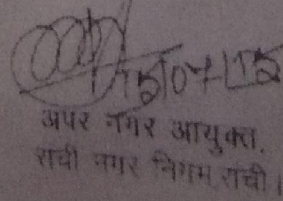 15/07/15
अपर नगर आयुक्त,
रांची नगर निगम, रांची।